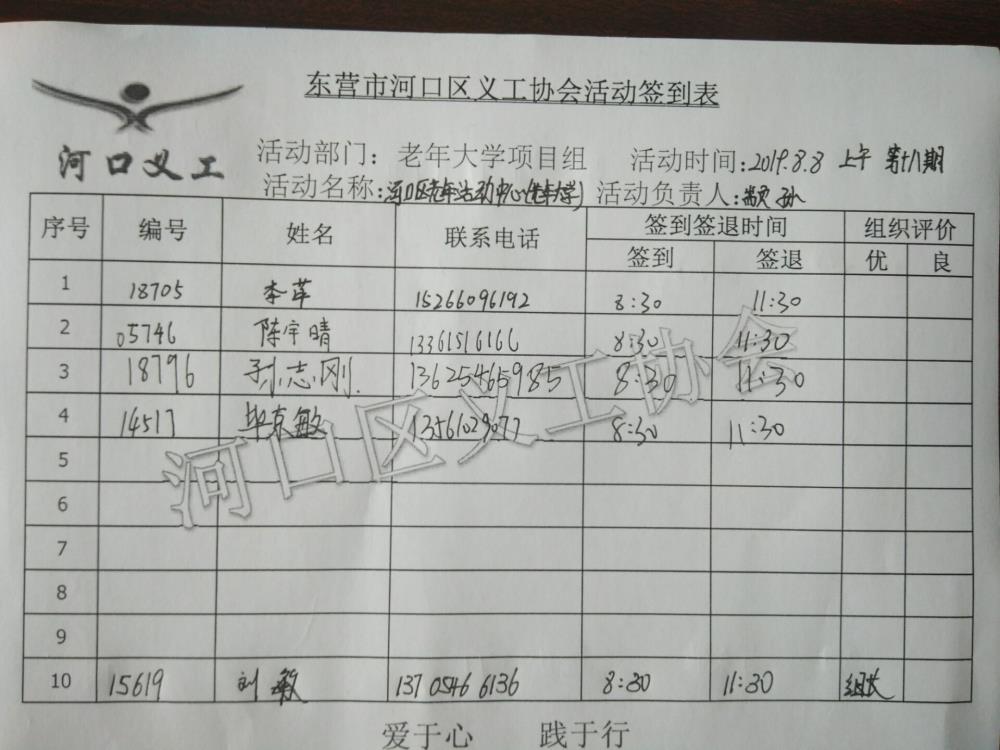 东营市河口区义工协会活动签到表
河口义工
活动部门：老年大学项目组 活动时间：2019.8.8 上午 第十八期
活动名称：河口区老年活动中心(老年大学) 活动负责人：
序号 编号 姓名 联系电话 签到签退时间 组织评价
签到 签退 优 良
1 18705 李萍 15266096192 8:30 11:30
2 05746 陈宇晴 13361516166 8:30 11:30
3 18796 孙志刚 13625465985 8:30 11:30
4 14517 毕京敏 13561029077 8:30 11:30
5
6
7
8
9
10 15619 刘敏 137 0546 6136 8:30 11:30 组长
爱于心 践于行
河口区义工协会